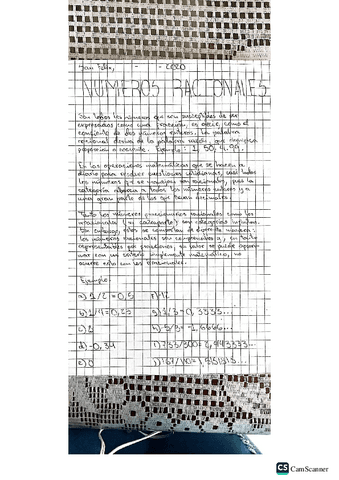 San Félix, - - 2020
NUMEROS RACIONALES
Son todos los números que son susceptibles de ser
expresados como una fracción, es decir, como el
cociente de dos números enteros. La palabra
racional deriva de la palabra razón, que significa
proporción o cociente. Ejemplo: 1, 50, 4.99.
En las operaciones matemáticas que se hacen a
diario para resolver cuestiones cotidianas, casi todos
los números que se manejan son racionales, pues la
categoría abarca a todos los números enteros y a
una gran parte de los que tienen decimales.
Tanto los números fraccionarios racionales como los
irracionales (su contraparte) son categorías infinitas.
Sin embargo, éstos se comportan de diferente manera:
los números racionales son comprensibles y, en tanto
representables por fracciones, su valor se puede aproxi-
mar con un criterio simplemente matemático, no
ocurre esto con los irracionales.
Ejemplo:
a) 1/2 = 0,5 f) -12
b) 1/4 = 0,25 g) 1/3 = 0,3333...
c) 8 h) -5/3 = -1,6666...
d) -0,34
e) 0
CS CamScanner